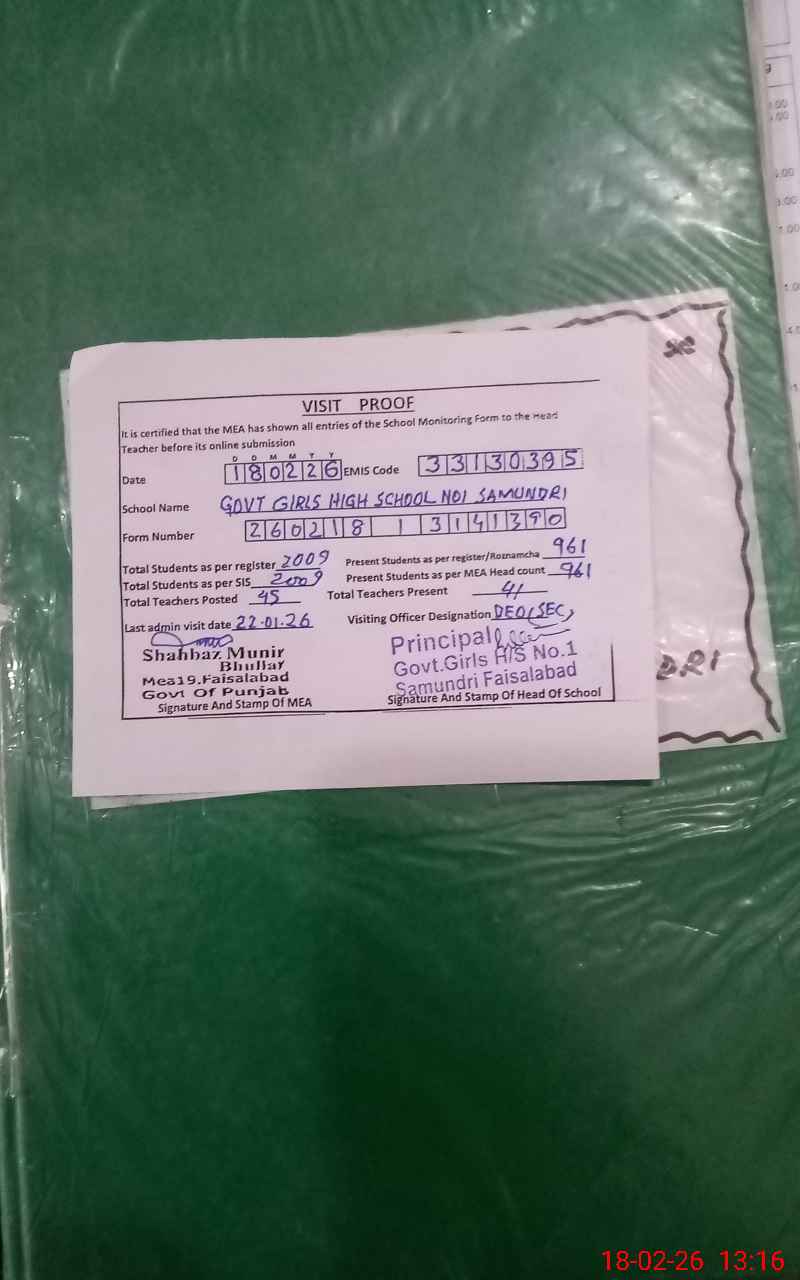 VISIT PROOF
It is certified that the MEA has shown all entries of the School Monitoring Form to the Head
Teacher before its online submission
D D M M Y Y
Date 180226 EMIS Code 33130395
School Name GOVT GIRLS HIGH SCHOOL NO1 SAMUNDRI
Form Number 260218 1 3141390
Total Students as per register 2009 Present Students as per register/Roznamcha 961
Total Students as per SIS 2009 Present Students as per MEA Head count 961
Total Teachers Posted 45 Total Teachers Present 41
Last admin visit date 22.01.26 Visiting Officer Designation DEO(SEC)
Shahbaz Munir
Bhullar
Mea19.Faisalabad
Govt Of Punjab
Signature And Stamp Of MEA
Principal
Govt.Girls H/S No.1
Samundri Faisalabad
Signature And Stamp Of Head Of School
DRI
18-02-26 13:16